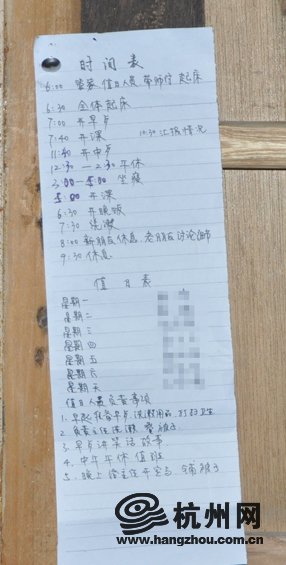 时间表
6:00 管家 值日人员 带师傅 起床
6:30 全体起床
7:00 开早点
7:40 开课 10:30 汇报情况
11:40 开中点
12:30—2:30 午休
3:00—5:00 坐寝
5:00 开课
6:30 开晚饭
7:30 洗漱
8:00 新朋友休息 老朋友讨论
9:30 休息
值日表
星期一
星期二
星期三
星期四
星期五
星期六
星期天
值日人员负责事项
1. 早起 准备早点 洗漱用品 打扫卫生
2. 负责主任洗漱 叠被子
3. 早点讲笑话 故事
4. 中午午休 值班
5. 晚上 给主任 铺被子
杭州网
www.hangzhou.com.cn